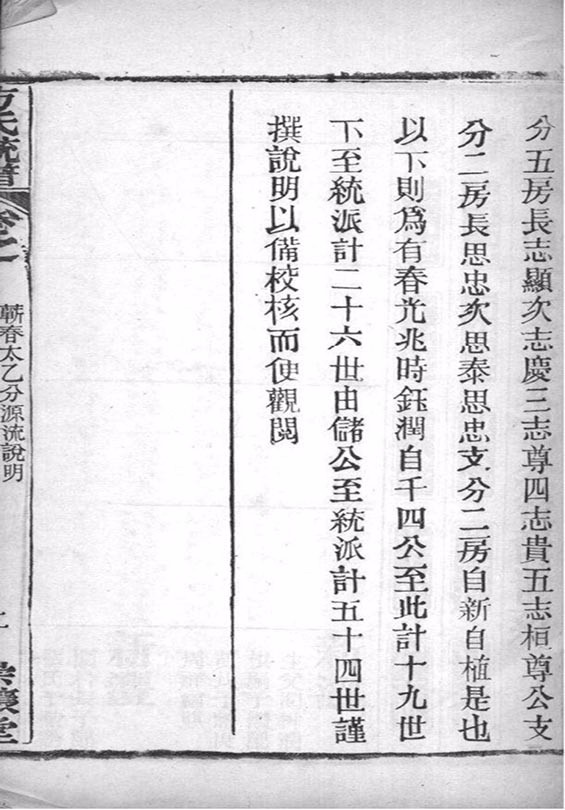 分五房長志顯次志慶三志尊四志貴五志桓尊公支
分二房長思忠次思泰思忠支分二房自新自植是也
以下則爲有春光兆時鈺潤自千四公至此計十九世
下至統派計二十六世由儲公至統派計五十四世謹
撰說明以備校核而便觀閱
方氏統譜
蘄春太乙分源流說明